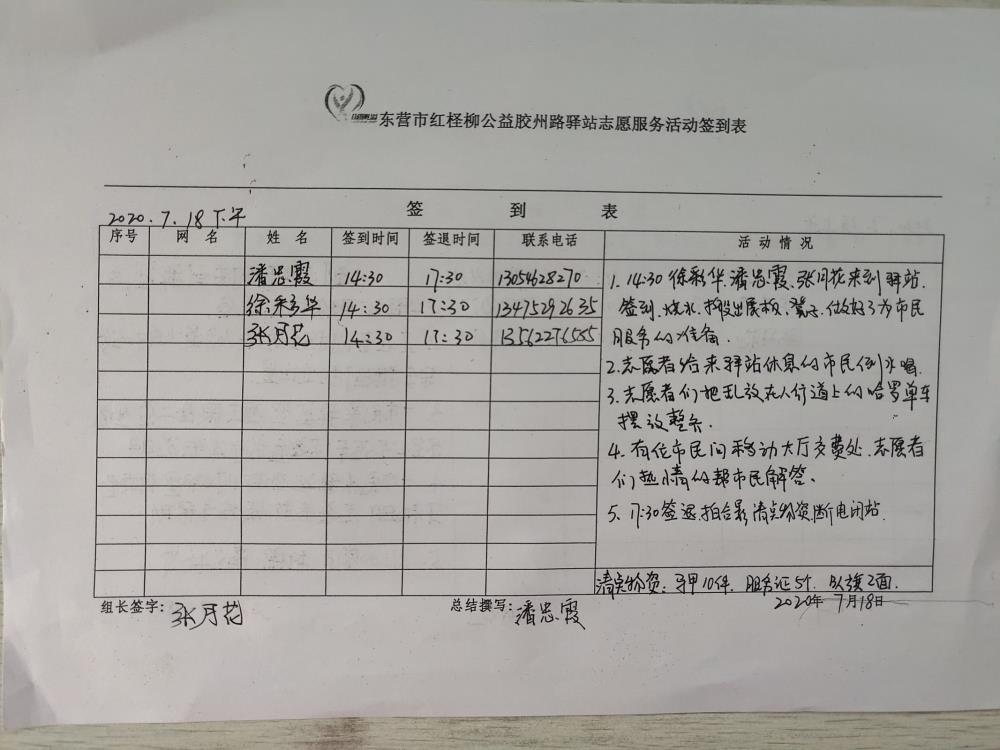 东营市红柽柳公益胶州路驿站志愿服务活动签到表
签 到 表
2020.7.18下午
序号 网 名 姓 名 签到时间 签退时间 联系电话 活 动 情 况
潘忠霞 14:30 17:30 13054628270
徐彩华 14:30 17:30 13475292635
张月花 14:30 17:30 13562276555
1. 14:30徐彩华.潘忠霞.张月花来到驿站
签到.烧水.搬出展板、凳子.做好了为市民
服务的准备.
2.志愿者给来驿站休息的市民倒水喝.
3.志愿者们把乱放在人行道上的哈罗单车
摆放整齐.
4.有位市民问移动大厅交费处.志愿者
们热情的帮市民解答.
5. 17:30签退.拍合影.清点物资.断电闭站.
清点物资:马甲10件. 服务证5个. 队旗2面.
2020年 7月18日
组长签字:张月花 总结撰写:潘忠霞